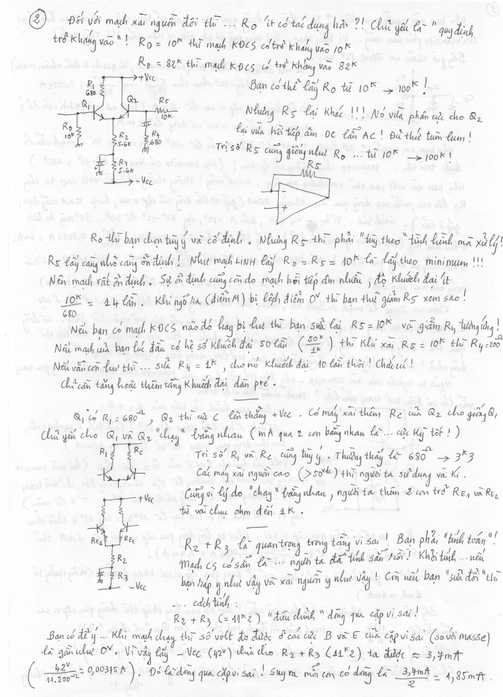 ② Đối với mạch xài nguồn đôi thì ... Ro ít có tác dụng hơn ?! Chủ yếu là "quy định
trở kháng vào"! Ro = 10K thì mạch KĐCS có trở kháng vào 10K
Ro = 82K thì mạch KĐCS có trở kháng vào 82K
+Vcc
R1
680
Q1
Q2
Rc
10K
Ro
10K
R2
5.6K
R3
5.6K
-Vcc
R4
680
Bạn có thể lấy Ro từ 10K → 100K !
Nhưng R5 lại khác !!! Nó vừa phân cực cho Q2
lại vừa hồi tiếp âm DC lẫn AC ! Đủ thứ tùm lum !
Trị số R5 cũng giống như Ro ... từ 10K → 100K !
R5
Ro thì bạn chọn tùy ý và cố định. Nhưng R5 thì phải "tùy theo" tình hình mà xử lý !
R5 lấy càng nhỏ càng ổn định ! Như mạch LINH lấy Ro = R5 = 10K là lấy theo minimum !!!
Nên mạch rất ổn định. Sự ổn định cũng còn do mạch hồi tiếp âm nhiều, độ khuếch đại ít
10K/680 = 14 lần. Khi ngõ ra (điểm M) bị lệch điểm 0V thì bạn thử giảm R5 xem sao !
Nếu bạn có mạch KĐCS nào đó hay bị hư thì bạn sửa lại R5 = 10K và giảm R4 tương ứng !
Nếu mạch của bạn lúc đầu có hệ số khuếch đại 50 lần (50K/1K) thì khi xài R5 = 10K thì R4 = 200Ω
Nếu vẫn còn hư thì ... sửa R4 = 1K, cho nó khuếch đại 10 lần thôi ! Chắc cú !
Chỉ cần tăng hoặc thêm tầng khuếch đại dàn pré.
Q1 có R1 = 680Ω, Q2 thì cực C lên thẳng +Vcc. Có máy xài thêm Rc của Q2 cho giống Q1
Chủ yếu cho Q1 và Q2 "chạy" bằng nhau (mA qua 2 con bằng nhau là ... cực kỳ tốt !)
R1
Rc
Trị số R1 và Rc cũng tùy ý. Thường thấy là 680Ω → 3K3
Các máy xài nguồn cao (>50Vdc) thì người ta sử dụng vài K.
+Vcc
RE1
RE2
R2
R3
-Vcc
Cũng vì lý do "chạy" bằng nhau, người ta thêm 2 con trở RE1 và RE2
từ vài chục ohm đến 1K.
R2 + R3 là quan trọng trong tầng vi sai ! Bạn phải "tính toán" !
Mạch CS có sẵn là ... người ta đã tính sẵn rồi ! Khỏi tính ... nếu
bạn ráp y như vậy và xài nguồn y như vậy ! Còn nếu bạn "sửa đổi" thì
... cách tính :
R2 + R3 (= 11K2) "điều chỉnh" dòng qua cặp vi sai !
Bạn có để ý - Khi mạch chạy thì số volt đo được ở các cực B và E của cặp vi sai (so với masse)
là gần như 0V. Vì vậy lấy -Vcc (42V) chia cho R2 + R3 (11K2) ta được ≈ 3,7mA
(42V/11.200Ω = 0,00375A). Đó là dòng qua cặp vi sai ! Suy ra mỗi con có dòng là 3,7mA/2 = 1,85mA.